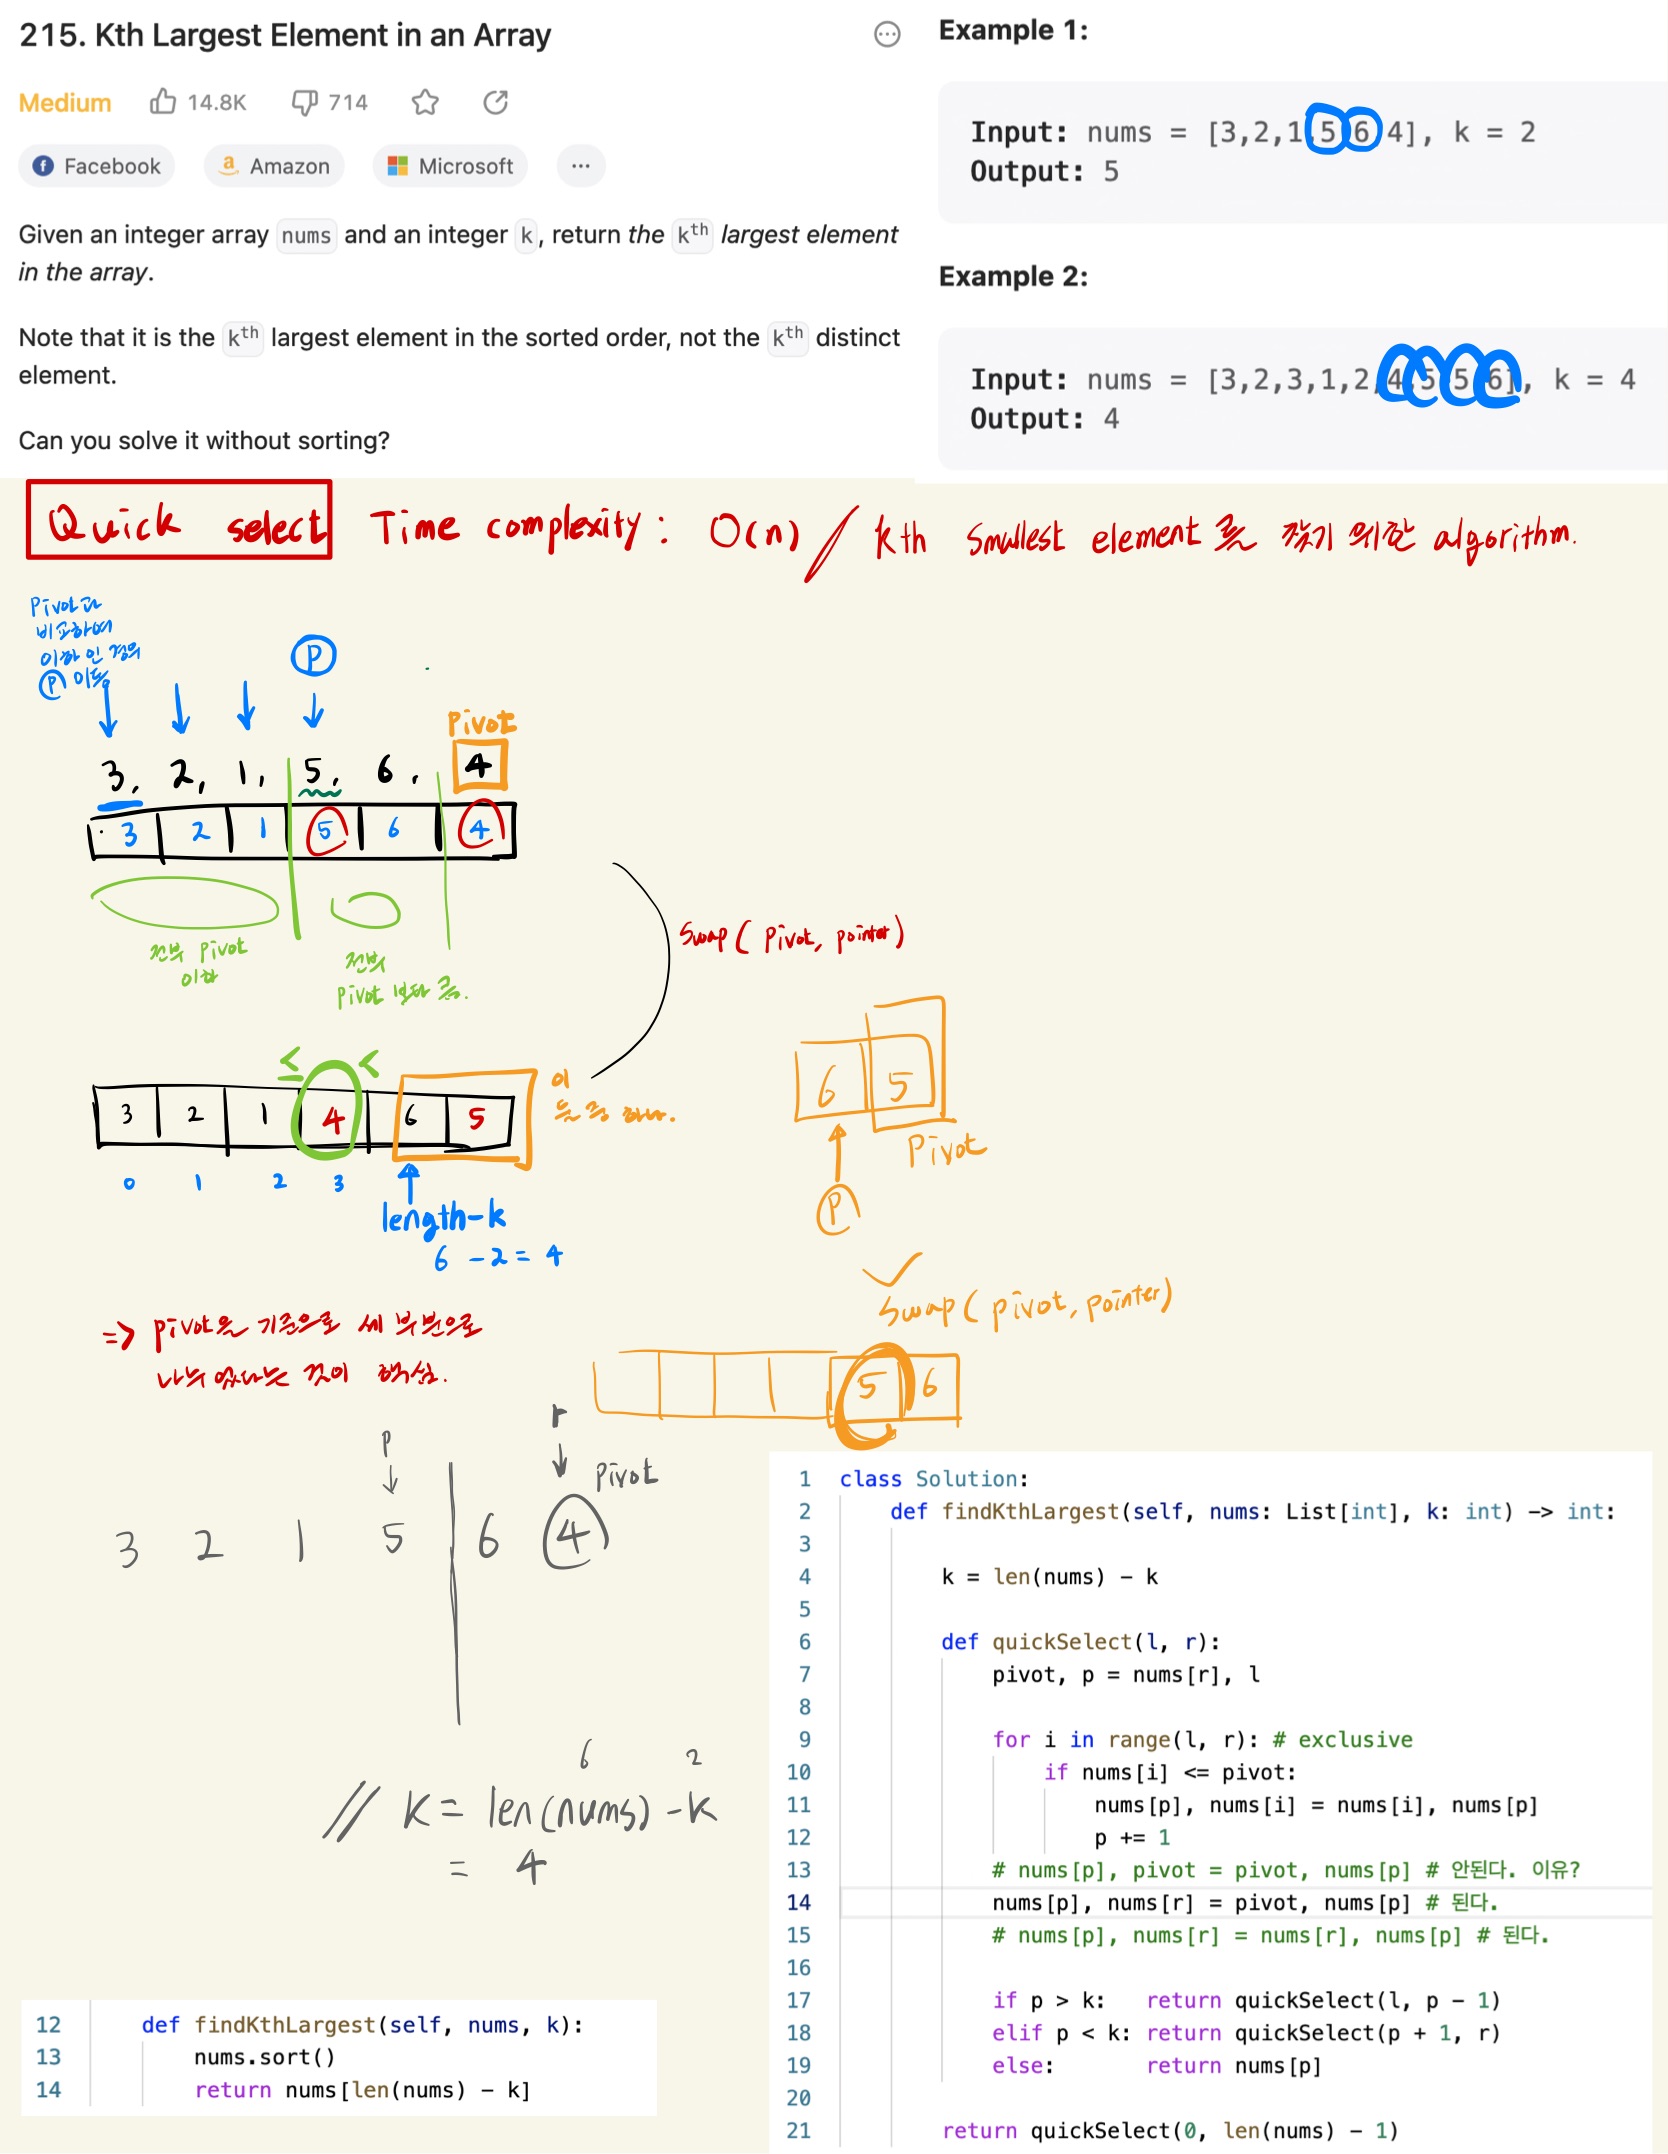 215. Kth Largest Element in an Array
Medium 14.8K 714
Facebook Amazon Microsoft ...
Given an integer array nums and an integer k, return the kth largest element
in the array.
Note that it is the kth largest element in the sorted order, not the kth distinct
element.
Can you solve it without sorting?
Example 1:
Input: nums = [3,2,1,5,6,4], k = 2
Output: 5
Example 2:
Input: nums = [3,2,3,1,2,4,5,5,6], k = 4
Output: 4
Quick select Time complexity: O(n) / kth smallest element 를 찾기 위한 algorithm.
Pivot과
비교하여
이하인 경우
P 이동
P
Pivot
3, 2, 1, 5, 6, 4
3 2 1 5 6 4
전부 pivot
이하
전부
pivot 보다 큼.
Swap(pivot, pointer)
≤ <
3 2 1 4 6 5
이
둘 중 하나.
0 1 2 3
length-k
6 - 2 = 4
6 5
Pivot
P
Swap(pivot, pointer)
5 6
=> pivot을 기준으로 세 부분으로
나누었다는 것이 핵심.
P r
Pivot
3 2 1 5 6 4
6 2
// K = len(nums) - K
= 4
12 def findKthLargest(self, nums, k):
13 nums.sort()
14 return nums[len(nums) - k]
1 class Solution:
2 def findKthLargest(self, nums: List[int], k: int) -> int:
3
4 k = len(nums) - k
5
6 def quickSelect(l, r):
7 pivot, p = nums[r], l
8
9 for i in range(l, r): # exclusive
10 if nums[i] <= pivot:
11 nums[p], nums[i] = nums[i], nums[p]
12 p += 1
13 # nums[p], pivot = pivot, nums[p] # 안된다. 이유?
14 nums[p], nums[r] = pivot, nums[p] # 된다.
15 # nums[p], nums[r] = nums[r], nums[p] # 된다.
16
17 if p > k: return quickSelect(l, p - 1)
18 elif p < k: return quickSelect(p + 1, r)
19 else: return nums[p]
20
21 return quickSelect(0, len(nums) - 1)